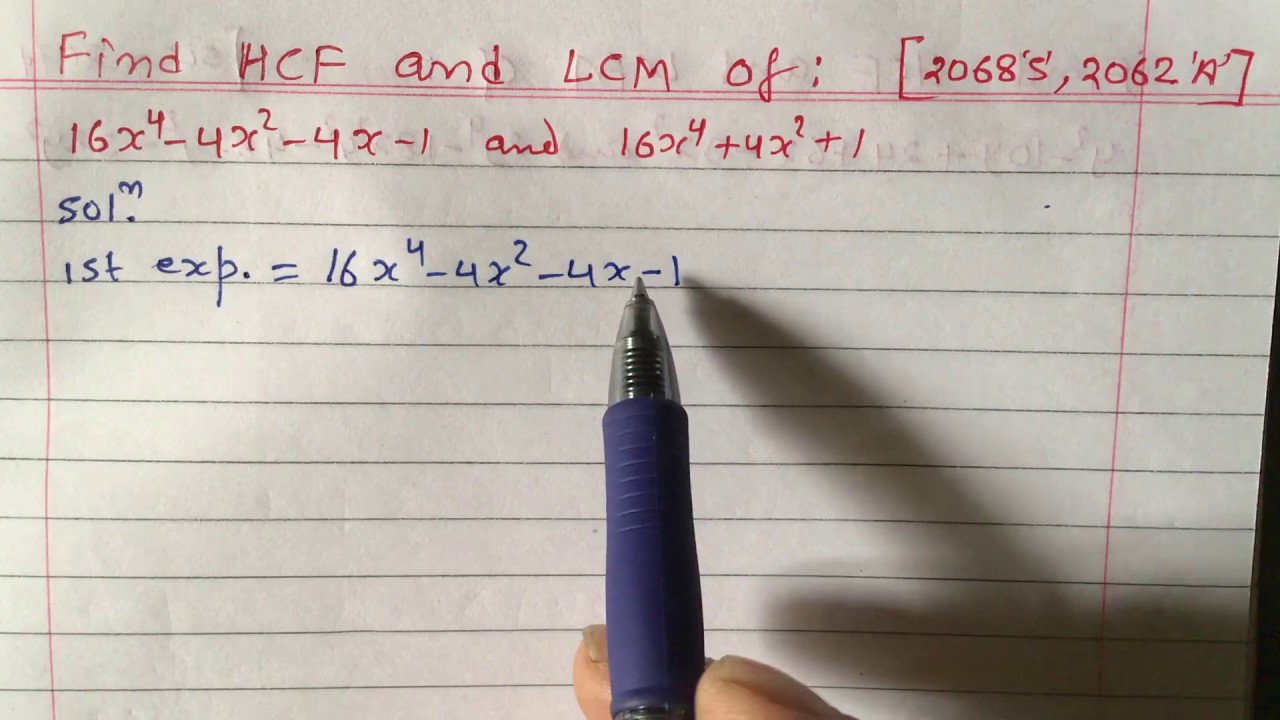 Find HCF and LCM of: [2068'S', 2062'A']
16x⁴-4x²-4x-1 and 16x⁴+4x²+1
solⁿ.
1st exp. = 16x⁴-4x²-4x-1